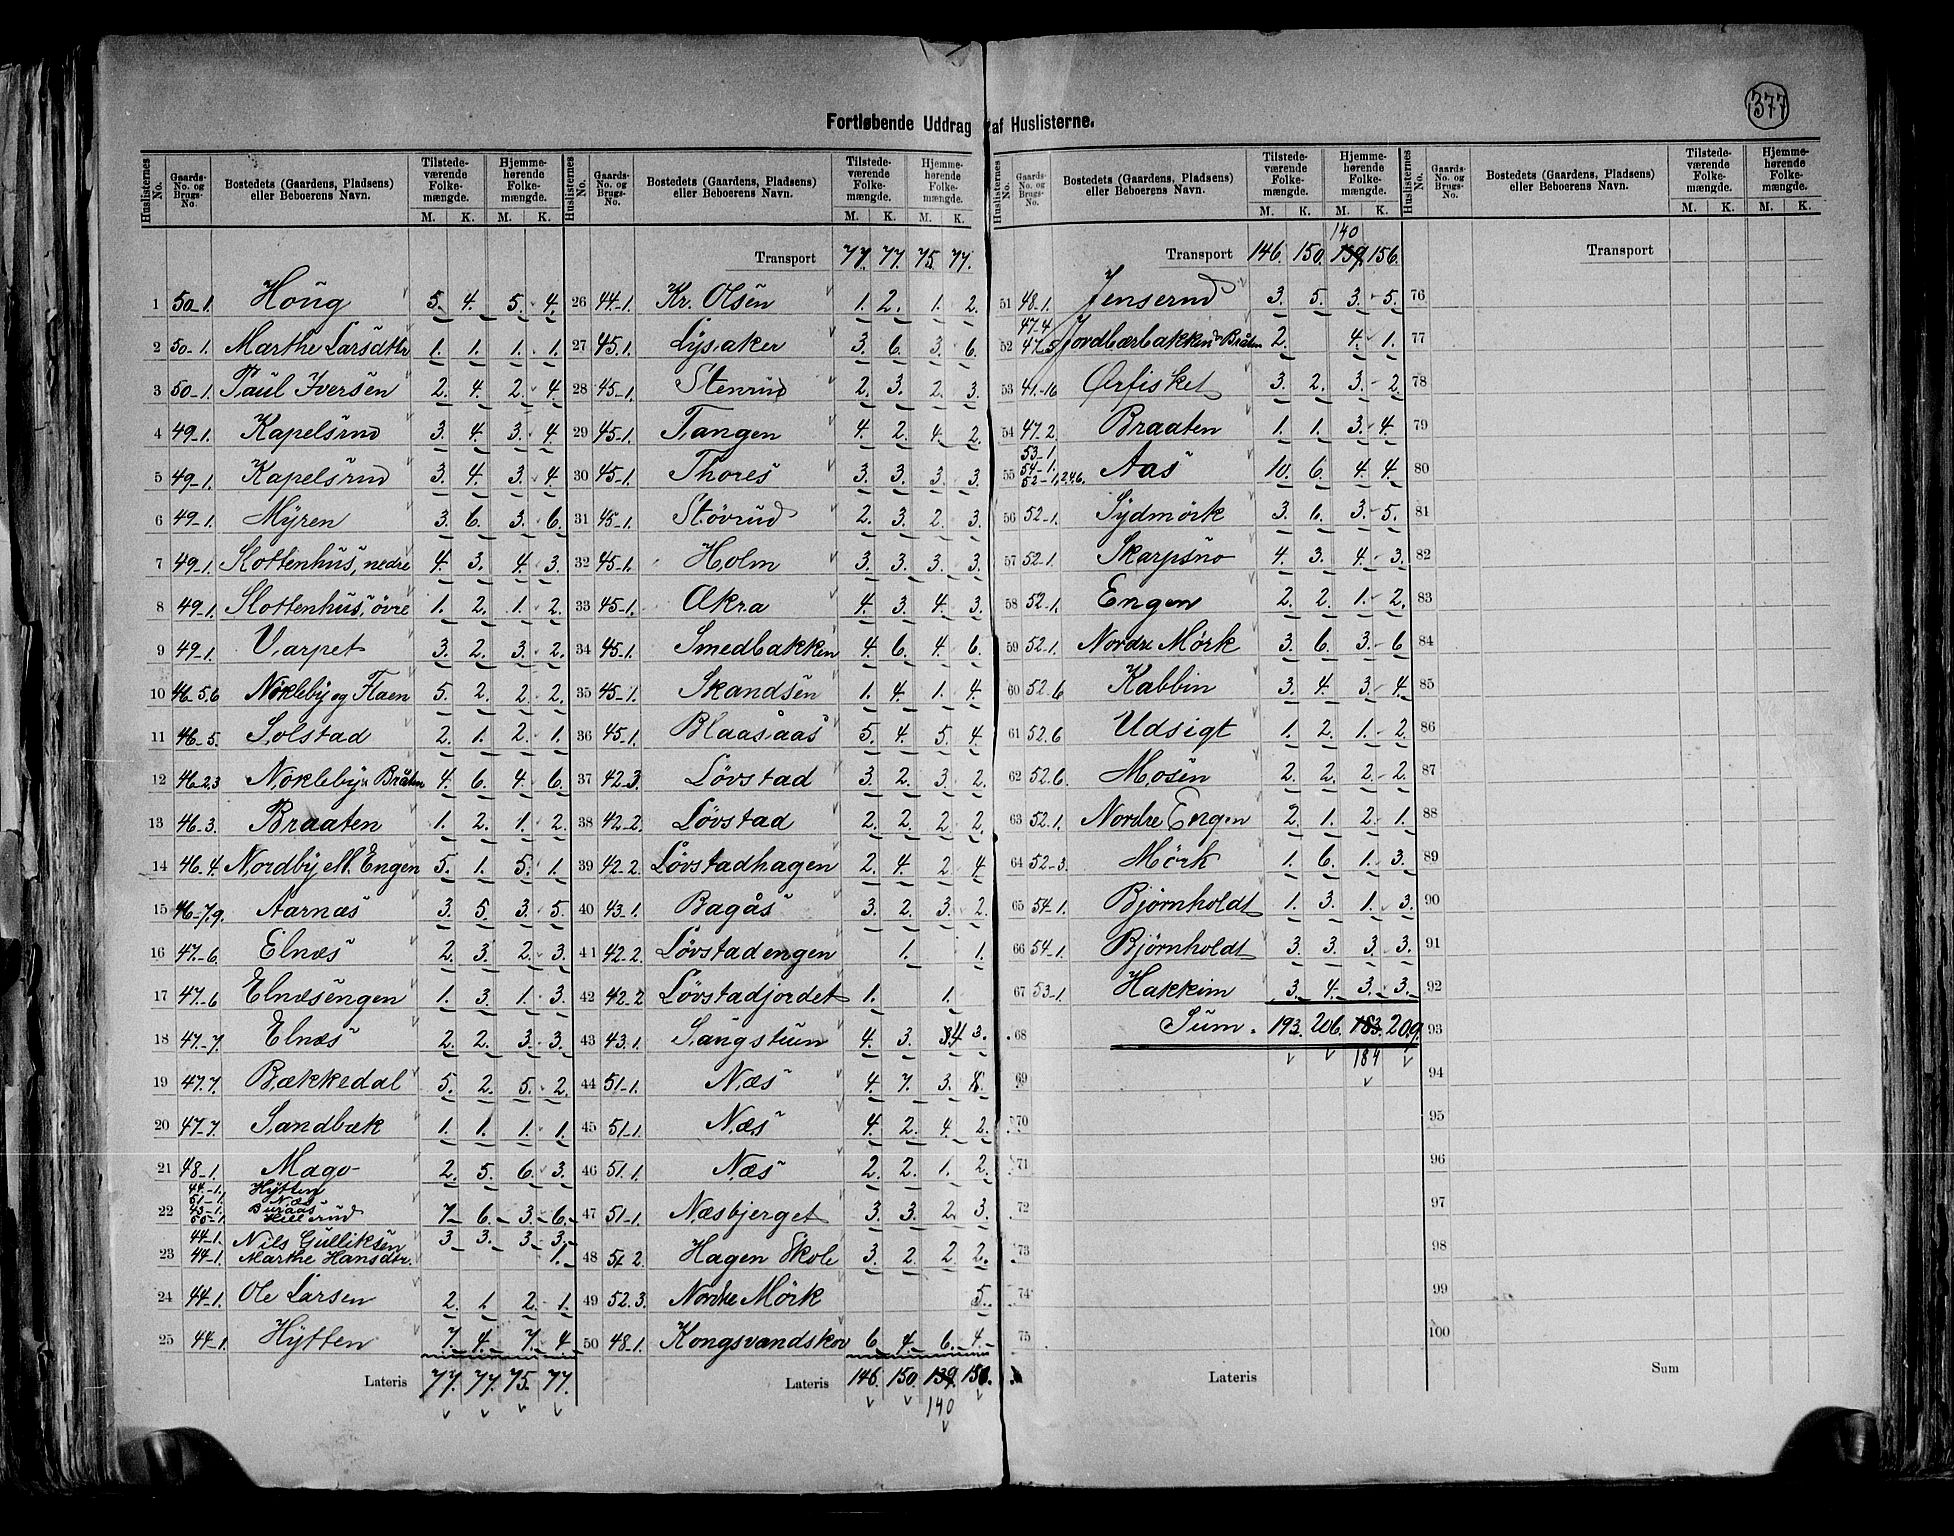 377
Fortløbende Uddrag af Huslisterne.
Huslisternes No. Gaards-No. og Brugs-No. Bostedets (Gaardens, Pladsens) eller Beboerens Navn. Tilstedeværende Folkemængde. M. K. Hjemmehørende Folkemængde. M. K.
1 50-1. Houg 5. 4. 5. 4.
2 50-1. Marthe Larsdtr 1. 1. 1. 1.
3 50-1. Paul Iversen 2. 4. 2. 4.
4 49-1. Kapelsrud 3. 4. 3. 4.
5 49-1. Kapelsrud 3. 4. 3. 4.
6 49-1. Myren 3. 6. 3. 6.
7 49-1. Slottenhus, nedre 4. 3. 4. 3.
8 49-1. Slottenhus, övre 1. 2. 1. 2.
9 49-1. Varpet 3. 2. 3. 2.
10 46-5.6 Nökleby og Flaen 5. 2. 2. 2.
11 46-5. Solstad 2. 1. 2. 1.
12 46-2.3 Nökleby Bråten 4. 6. 4. 6.
13 46-3. Braaten 1. 2. 1. 2.
14 46-4. Nordby M. Engen 5. 1. 5. 1.
15 46-7.9. Aarnæs 3. 5. 3. 5.
16 47-6. Elnæs 2. 3. 2. 3.
17 47-6 Elnæsengen 1. 3. 1. 3.
18 47-7. Elnæs 2. 2. 3. 3.
19 47-7. Bækkedal 5. 2. 5. 2.
20 47-7. Sandbæk 1. 1. 1. 1.
21 48-1. Mago 2. 5. 6. 3.
22 44-1. Hytten
51-1. Næs
43-1. Buraas
50-1. Hillerud 7 6. 3. 6.
23 44-1. Nils Gulliksen 3 3. 3. 3.
44-1. Marthe Hansdtr. 1.
24 44-1. Ole Larsen 2. 1 2. 1.
25 44-1. Hytten 7. 4. 7. 4
Lateris 77. 77. 75. 77.
Huslisternes No. Gaards-No. og Brugs-No. Bostedets (Gaardens, Pladsens) eller Beboerens Navn. Tilstedeværende Folkemængde. M. K. Hjemmehørende Folkemængde. M. K.
Transport 77. 77. 75. 77.
26 44-1. Kr. Olsen 1. 2. 1. 2.
27 45.1. Lysaker 3. 6. 3. 6.
28 45-1. Stenrud 2. 3. 2. 3.
29 45-1. Tangen 4. 2. 4. 2.
30 45-1. Thores 3. 3. 3. 3.
31 45-1. Stövrud 2. 3. 2. 3.
32 45-1. Holm 3. 3. 3. 3.
33 45-1. Økra 4. 3. 4. 3.
34 45-1. Smedbakken 4. 6. 4. 6.
35 45-1. Skandsen 1. 4. 1. 4.
36 45-1. Blaasaas 5. 4. 5. 4.
37 42.3. Lövstad 3. 2. 3. 2.
38 42-2. Lövstad 2. 2. 2. 2.
39 42-2. Lövstadhagen 2. 4. 2 4
40 43-1. Bagås 3. 2. 3. 2.
41 42-2. Lövstadengen 1. 1.
42 42-2 Lövstadjordet 1. 1.
43 43.1. Sangstuen 4. 3. 4 3.
44 51-1. Næs 4. 7. 3.
45 51-1. Næs 4. 2. 4. 2.
46 51.1. Næs 2. 2. 1. 2.
47 51-1. Næsbjerget 3. 3. 2. 3.
48 51. 2. Hagen Skole 3. 2 2. 2.
49 52.3. Nordre Mörk 5.
50 48-1. Kongsvandskov 6. 4. 6. 4.
Lateris 146. 150. 139. 156.
140
Huslisternes No. Gaards-No. og Brugs-No. Bostedets (Gaardens, Pladsens) eller Beboerens Navn. Tilstedeværende Folkemængde. M. K. Hjemmehørende Folkemængde. M. K.
140
Transport 146. 150. 139. 156.
51 48-1. Jenserud 3. 5. 3. 5.
47-4
52 47-5 Jordbærbakken Bråten 2. 4. 1.
53 41-16 Ørfisket 3. 2. 3. 2.
54 47-2. Braaten 1. 1. 3. 4.
53-1.
54-1.
55 52-1,2.4.6. Aas 10. 6. 4. 4.
56 52-1. Sydmörk 3. 6. 3. 5.
57 52.1. Skarpsno 4. 3. 4. 3.
58 52-1. Engen 2. 2. 1. 2.
59 52.1. Nordre Mörk 3. 6. 3. 6
60 52.6 Kabbin 3. 4. 3. 4.
61 52.6 Udsigt 1. 2. 1. 2.
62 52.6. Mosen 2. 2. 2. 2.
63 52.1. Nordre Engen 2. 1. 2. 1.
64 52-3. Mörk 1. 6. 1. 3.
65 54-1. Bjørnholdt 1. 3. 1. 3.
66 54-1. Bjørnholdt 3. 3. 3. 3.
67 53-1. Hakkim 3. 4. 3. 3.
68 Sum. 193. 206. 183. 209.
184
69
70
71
72
73
74
75
Lateris
Huslisternes No. Gaards-No. og Brugs-No. Bostedets (Gaardens, Pladsens) eller Beboerens Navn. Tilstedeværende Folkemængde. M. K. Hjemmehørende Folkemængde. M. K.
Transport
76
77
78
79
80
81
82
83
84
85
86
87
88
89
90
91
92
93
94
95
96
97
98
99
100
Sum